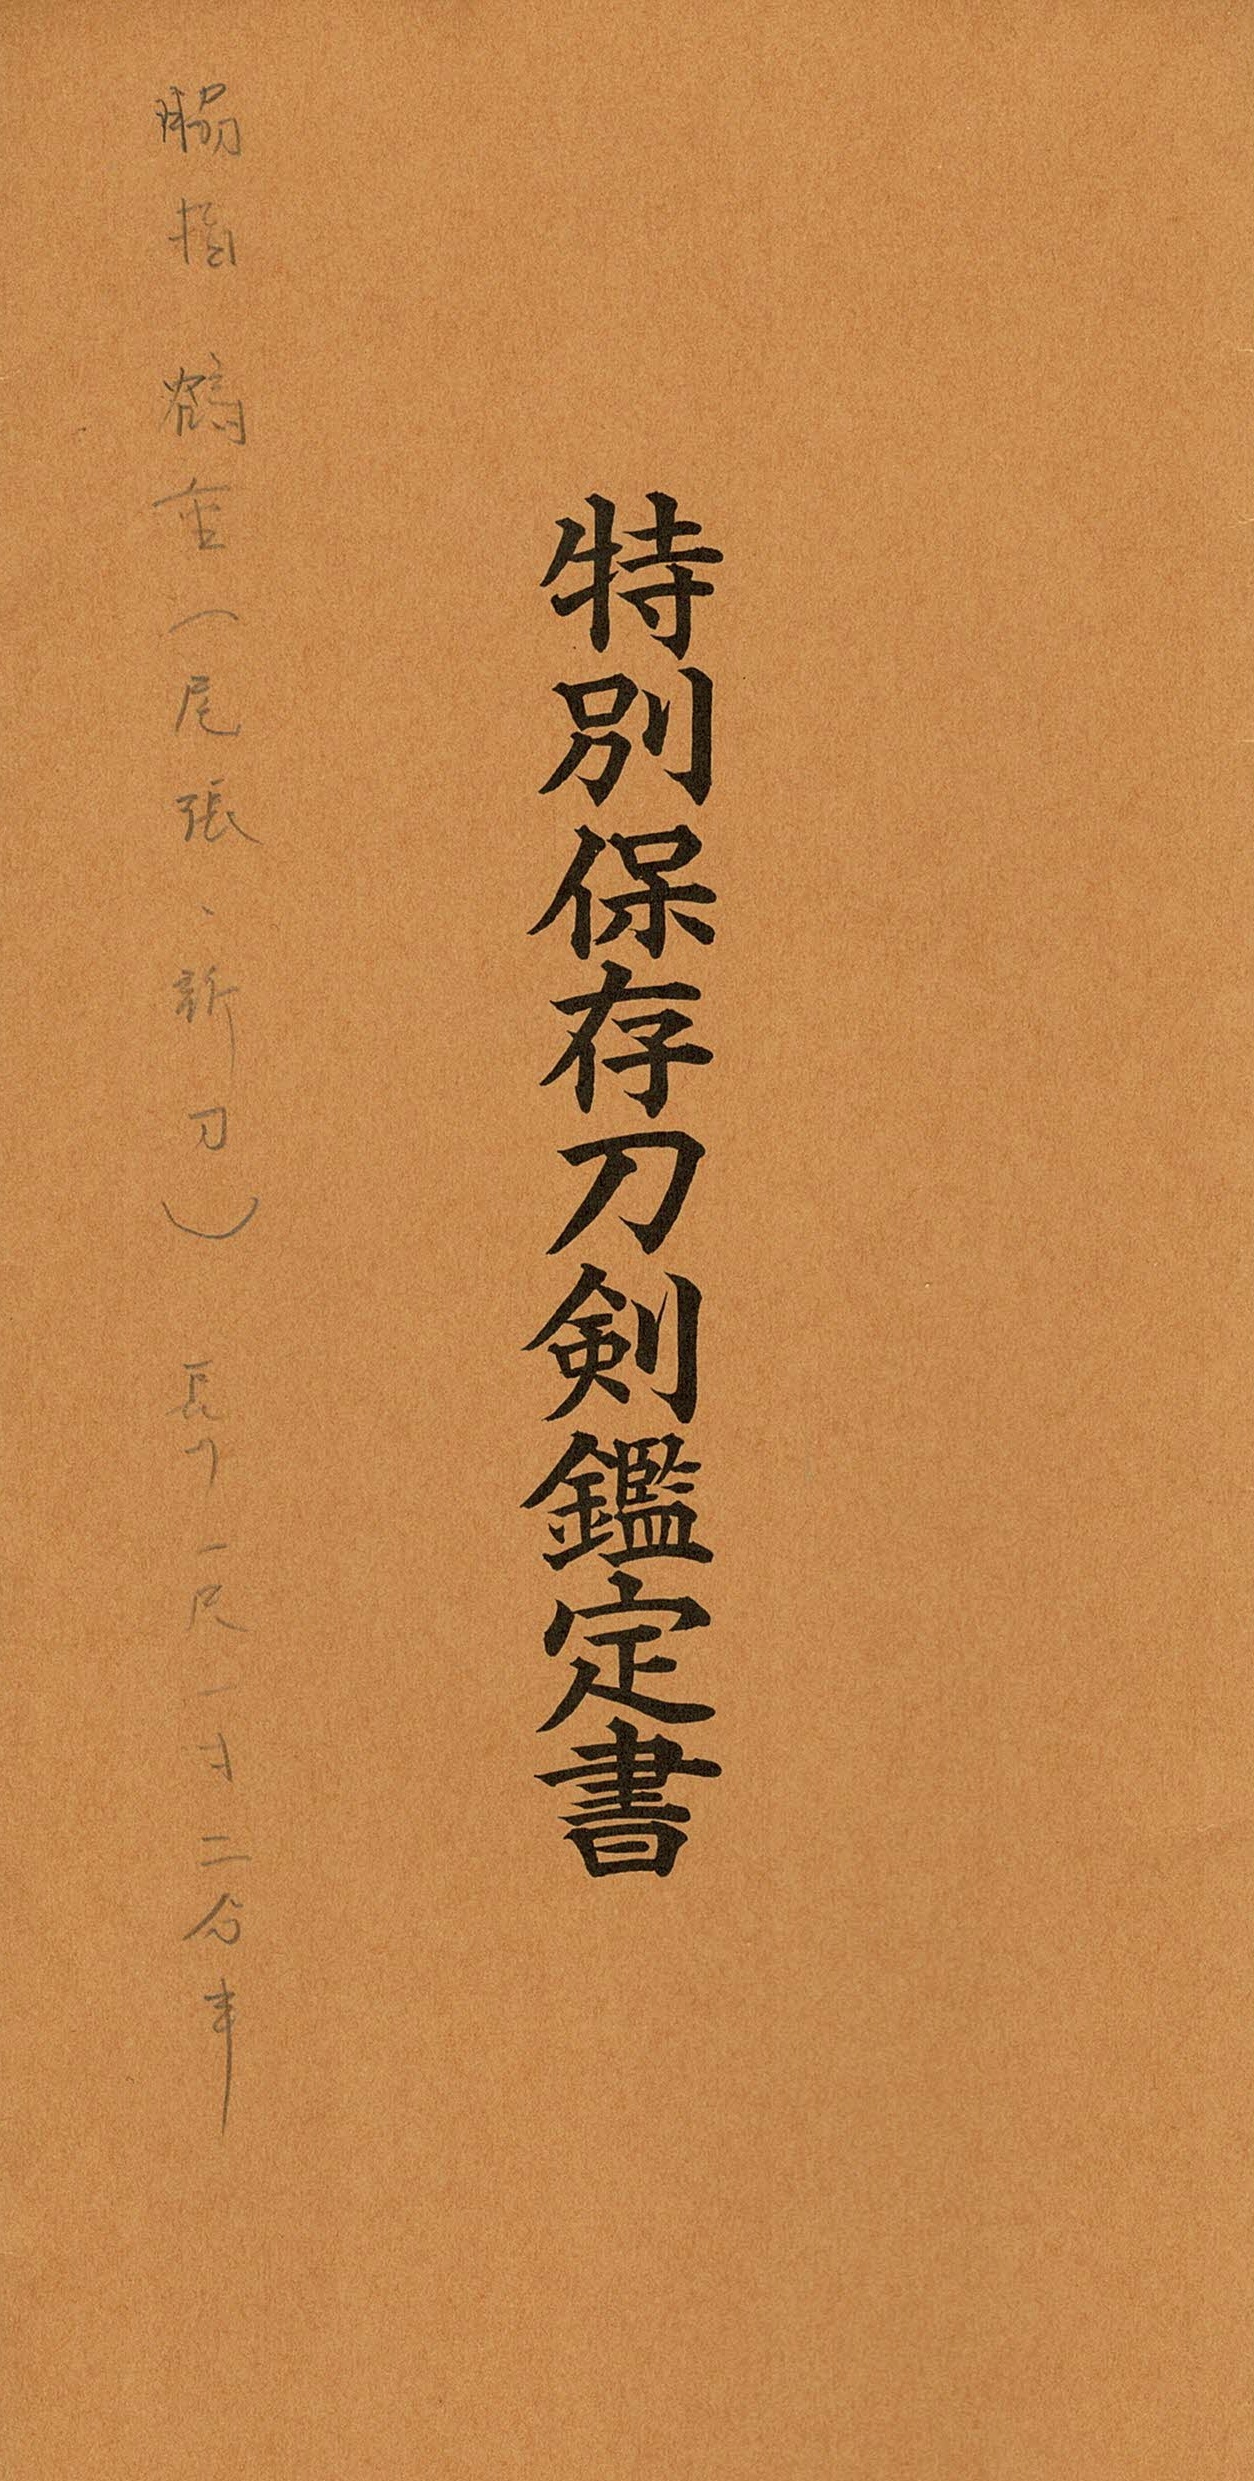 特別保存刀剣鑑定書
脇指 鶴重（尾張、新刀） 長サ一尺一寸二分半